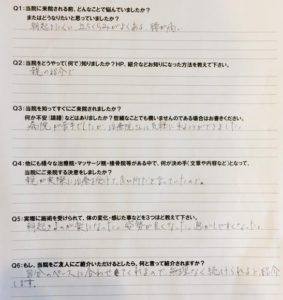 Q1：当院に来院される前、どんなことで悩んでいましたか？
またはどうなりたいと思っていましたか？
朝起きにくい、立ちくらみがよくある、腰が痛い
Q2：当院をどうやって（何で）知りましたか？HP、紹介などお知りになった方法を教えて下さい。
親の紹介で
Q3：当院を知ってすぐにご来院されましたか？
何か不安（躊躇）などはありましたか？些細なことでも構いませんのである場合はお書きください。
病院が苦手でしたが、治療院なので気軽に来ることができました。
Q4：他にも様々な治療院・マッサージ院・接骨院等がある中で、何が決め手（文章や内容など）となって、
当院にご来院する決意をしましたか？
親が実際に治療を受けて良い所だと言っていたので。
Q5：実際に施術を受けられて、体の変化・感じた事などを3つほど教えて下さい。
朝起きるのが楽になった。姿勢が良くなった。息がしやすくなった。
Q6：もし、当院をご友人にご紹介いただけるとしたら、何と言って紹介されますか？
自分のペースに合わせてくれるので無理なく続けられると紹介
します。